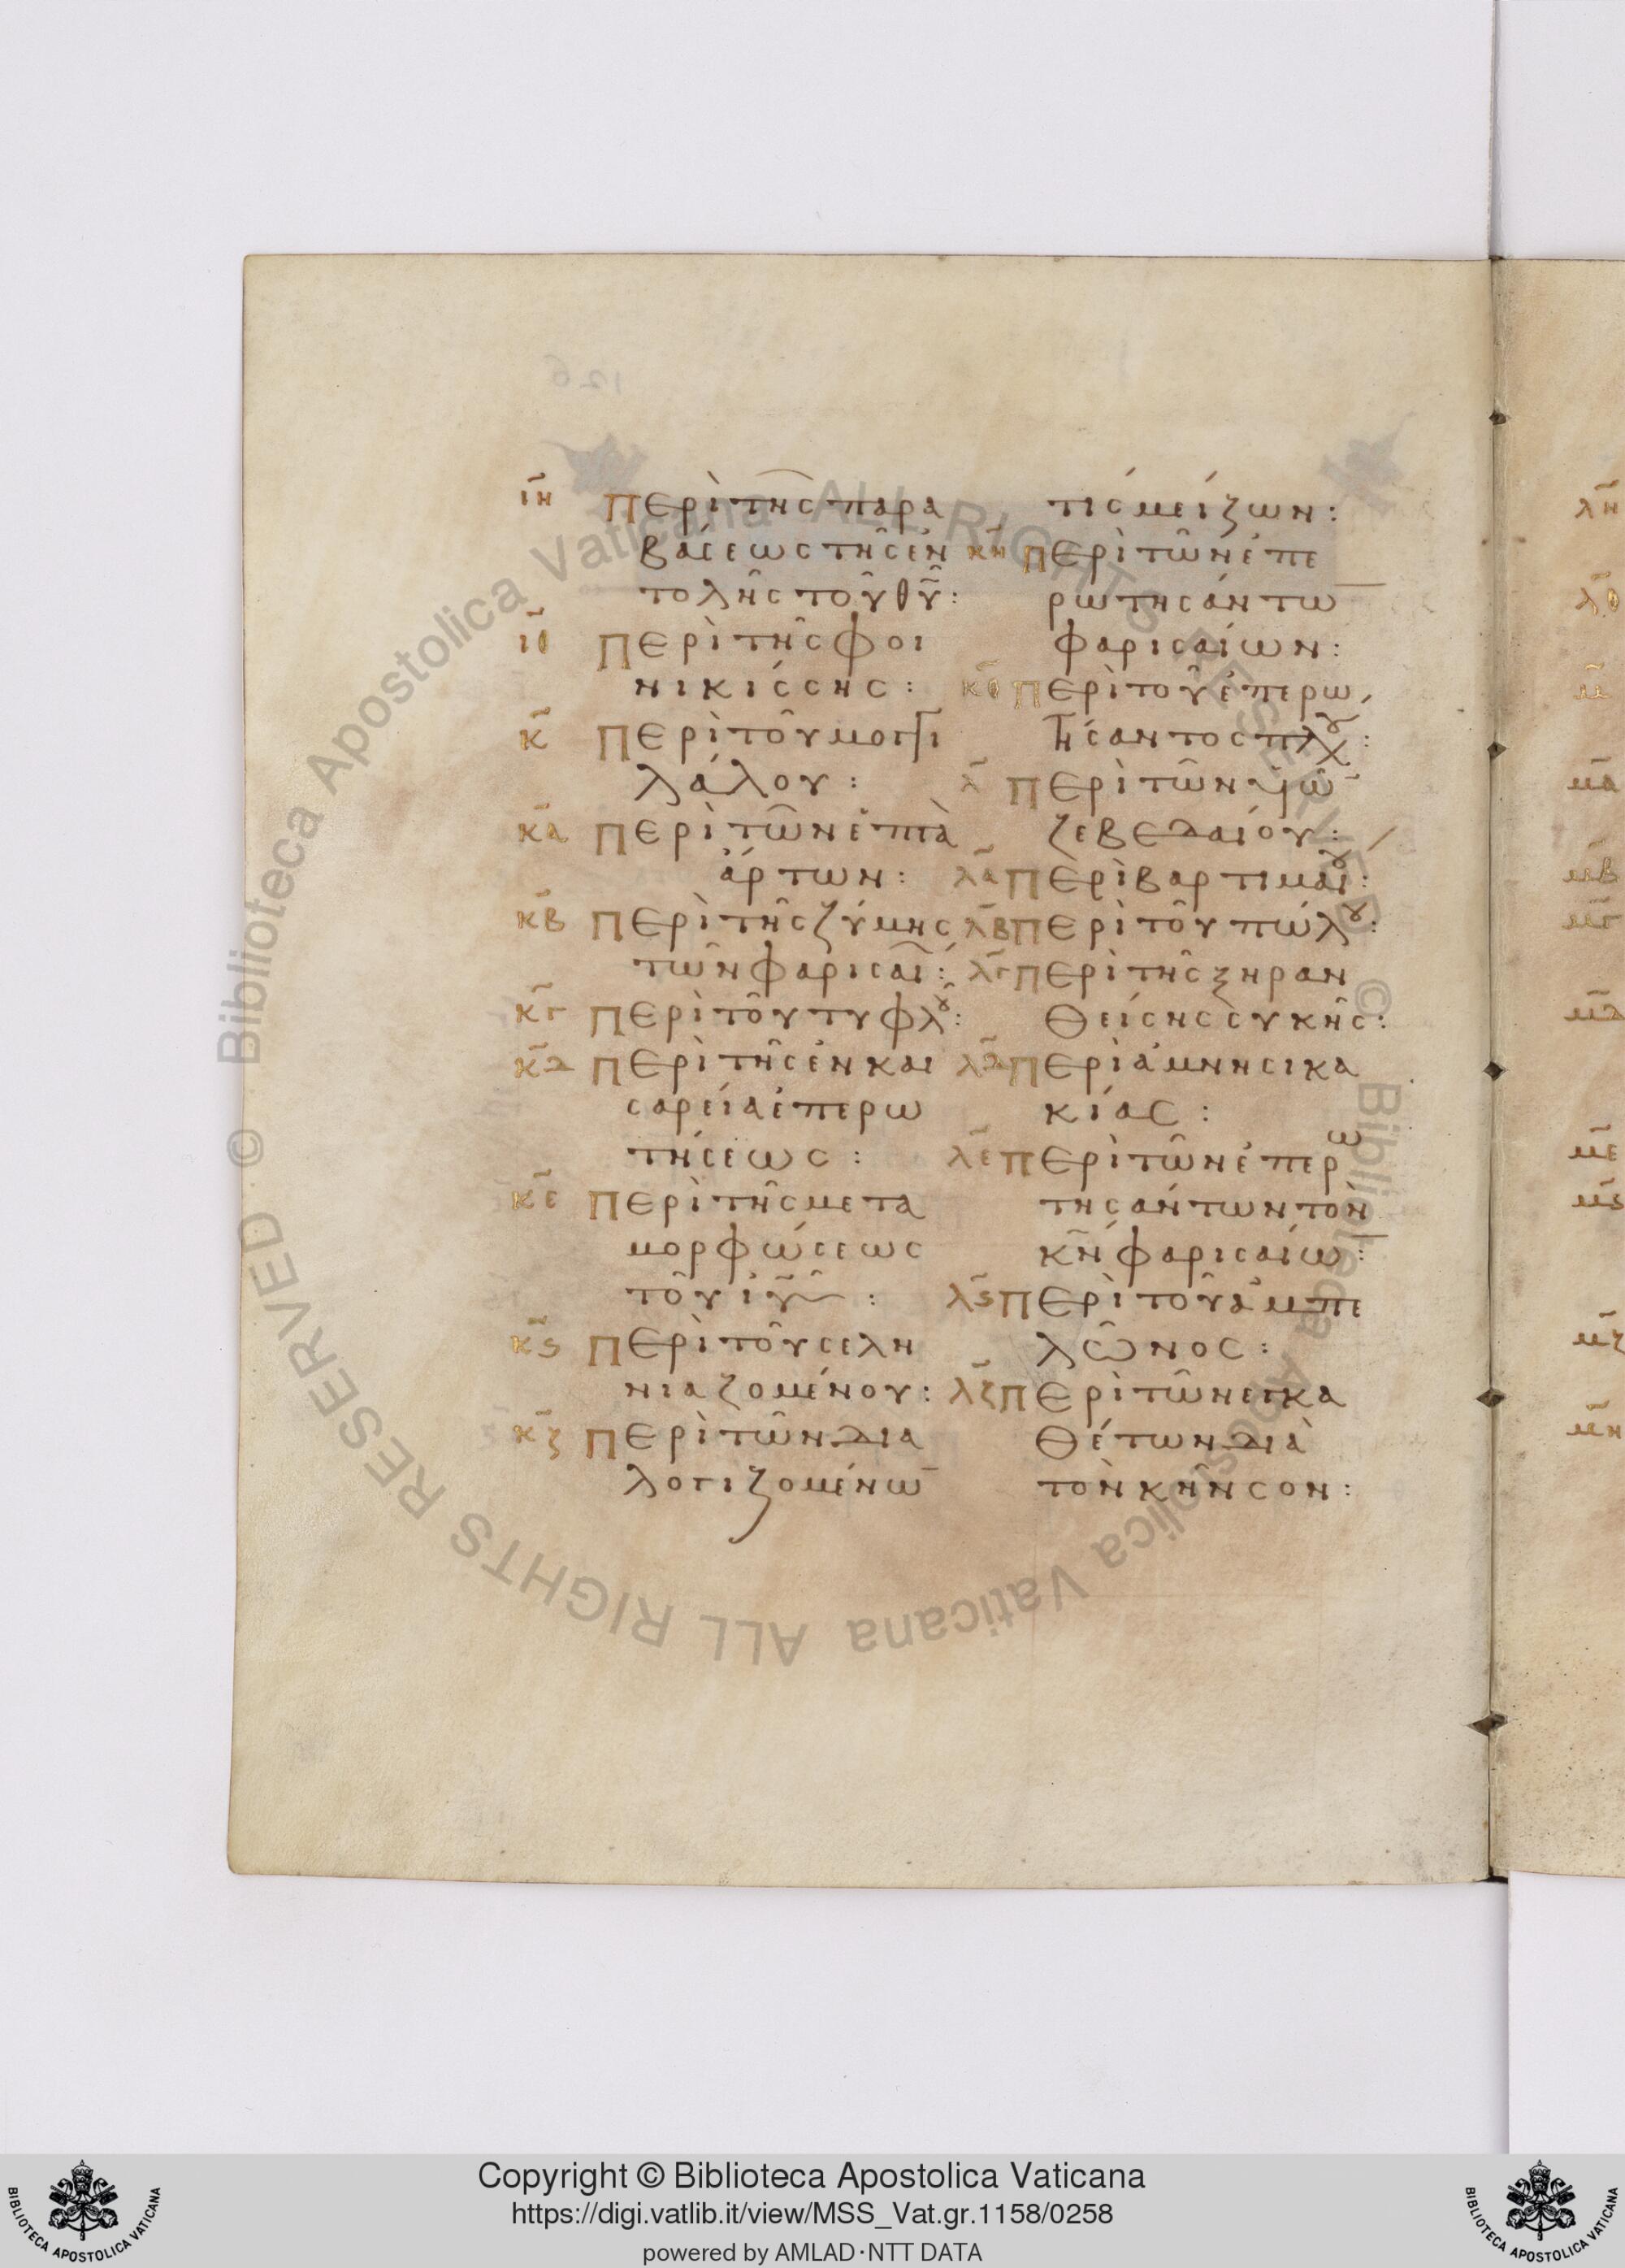 ιη Περὶ τῆς παρα
βάσεως τῆς ἐν
τολῆς τοῦ θῦ:
ιθ Περὶ τῆς φοι
νικίσσης:
κ Περὶ τοῦ μογγι
λάλου:
κα Περὶ τῶν ἑπτὰ
ἄρτων:
κβ Περὶ τῆς ζύμης
τῶν φαρισαί:
κγ Περὶ τοῦ τυφλοῦ:
κδ Περὶ τῆς ἐν και
σαρεία ἐπερω
τήσεως:
κε Περὶ τῆς μετα
μορφώσεως
τοῦ ἰῦ:
κς Περὶ τοῦ σελη
νιαζομένου:
κζ Περὶ τῶν δια
λογιζομένω
τίς μείζων:
κη Περὶ τῶν ἐπε
ρωτησάντω
φαρισαίων:
κθ Περὶ τοῦ ἐπερω
τήσαντος πλου:
λ Περὶ τῶν υἱῶ
ζεβεδαίου:
λα Περὶ βαρτιμαίου:
λβ Περὶ τοῦ πώλου:
λγ Περὶ τῆς ξηραν
θείσης συκῆς:
λδ Περὶ ἀμνησικα
κίας:
λε Περὶ τῶν ἐπερω
τησάντων τὸν
κν φαρισαίω:
λς Περὶ τοῦ ἀμπε
λῶνος:
λζ Περὶ τῶν εγκα
θέτων διὰ
τὸν κῆνσον:
λη
λθ
μ
μα
μβ
μγ
μδ
με
μς
μζ
μη
126
© Biblioteca Apostolica Vaticana ALL RIGHTS RESERVED · © Biblioteca Apostolica Vaticana ALL RIGHTS RESERVED ·
Copyright © Biblioteca Apostolica Vaticana
https://digi.vatlib.it/view/MSS_Vat.gr.1158/0258
powered by AMLAD·NTT DATA
BIBLIOTECA APOSTOLICA VATICANA
BIBLIOTECA APOSTOLICA VATICANA